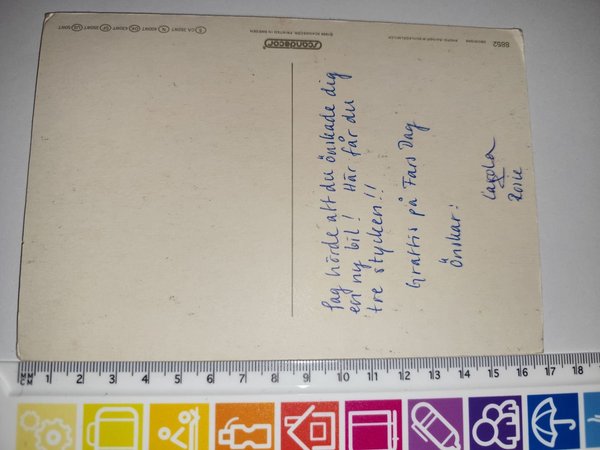 Jag hörde att du önskade dig
en ny bil! Här får du
tre stycken!!
Grattis på Fars Dag
Önskar:
Carola
scandecor
PRINTED IN SWEDEN
8852
MM
1 2 3 4 5 6 7 8 9 10 11 12 13 14 15 16 17 18